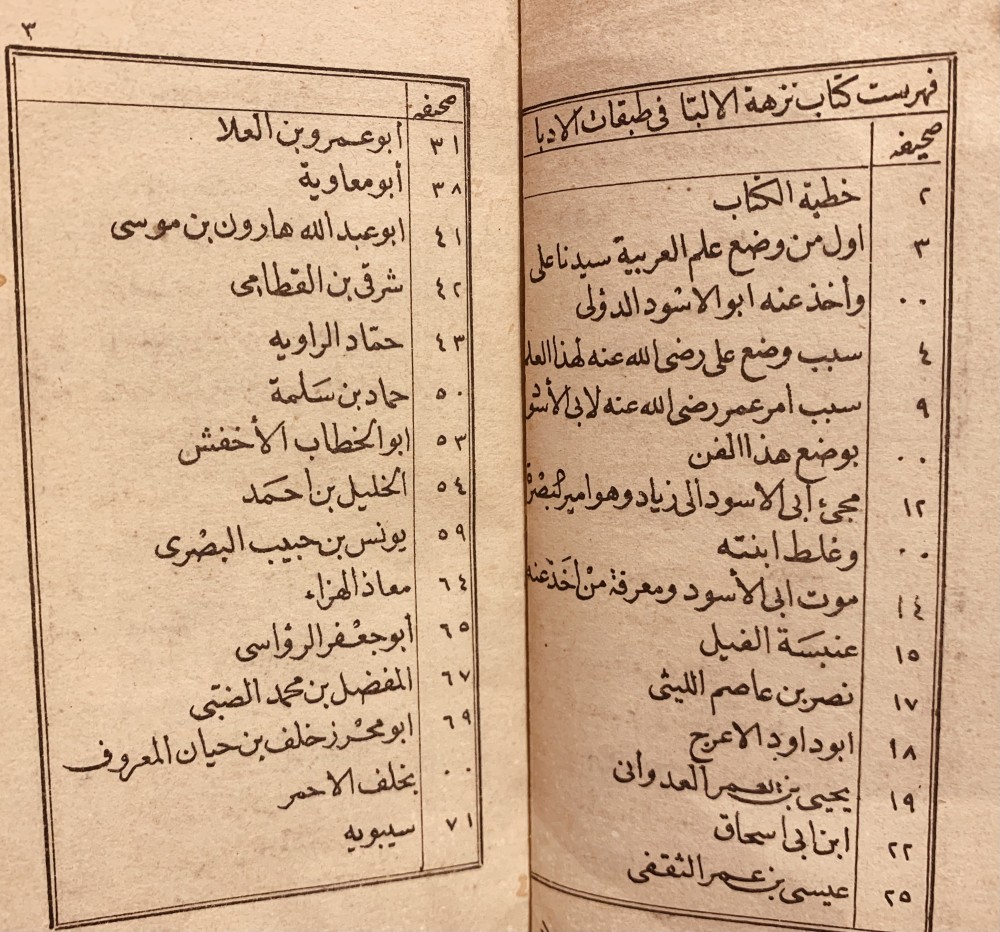 فهرست كتاب نزهة الالبتا فى طبقات الادبا
صحيفه
٢ خطبة الكتاب
٣ اول من وضع علم العربية سيدنا على
٠٠ وأخذ عنه ابو الاسود الدؤلى
٤ سبب وضع على رضى الله عنه لهذا العلم
٩ سبب امر عمر رضى الله عنه لابى الأسود
٠٠ بوضع هذا الفن
١٢ مجئ ابى الاسود الى زياد وهو امير البصرة
٠٠ وغلط ابنته
١٤ موت ابى الأسود ومعرفة من اخذ عنه
١٥ عنبسة الفيل
١٧ نصر بن عاصم الليثى
١٨ ابو داود الاعرج
١٩ يحيى بن يعمر العدوانى
٢٢ ابن ابى اسحاق
٢٥ عيسى بن عمر الثقفى
٣
صحيفه
٣١ أبو عمرو بن العلا
٣٨ أبو معاوية
٤١ ابو عبد الله هارون بن موسى
٤٢ شرقى بن القطامى
٤٣ حمّاد الراويه
٥٠ حماد بن سَلمة
٥٣ ابو الخطاب الأخفش
٥٤ الخليل بن احمَد
٥٩ يونس بن حبيب البصْرى
٦٤ معاذ الهزاء
٦٥ أبو جعْفر الرؤاسى
٦٧ المفضل بن محمد الضبّى
٦٩ ابو محْرز خلف بن حيان المعروف
٠٠ بخلف الاحمر
٧١ سيبويه